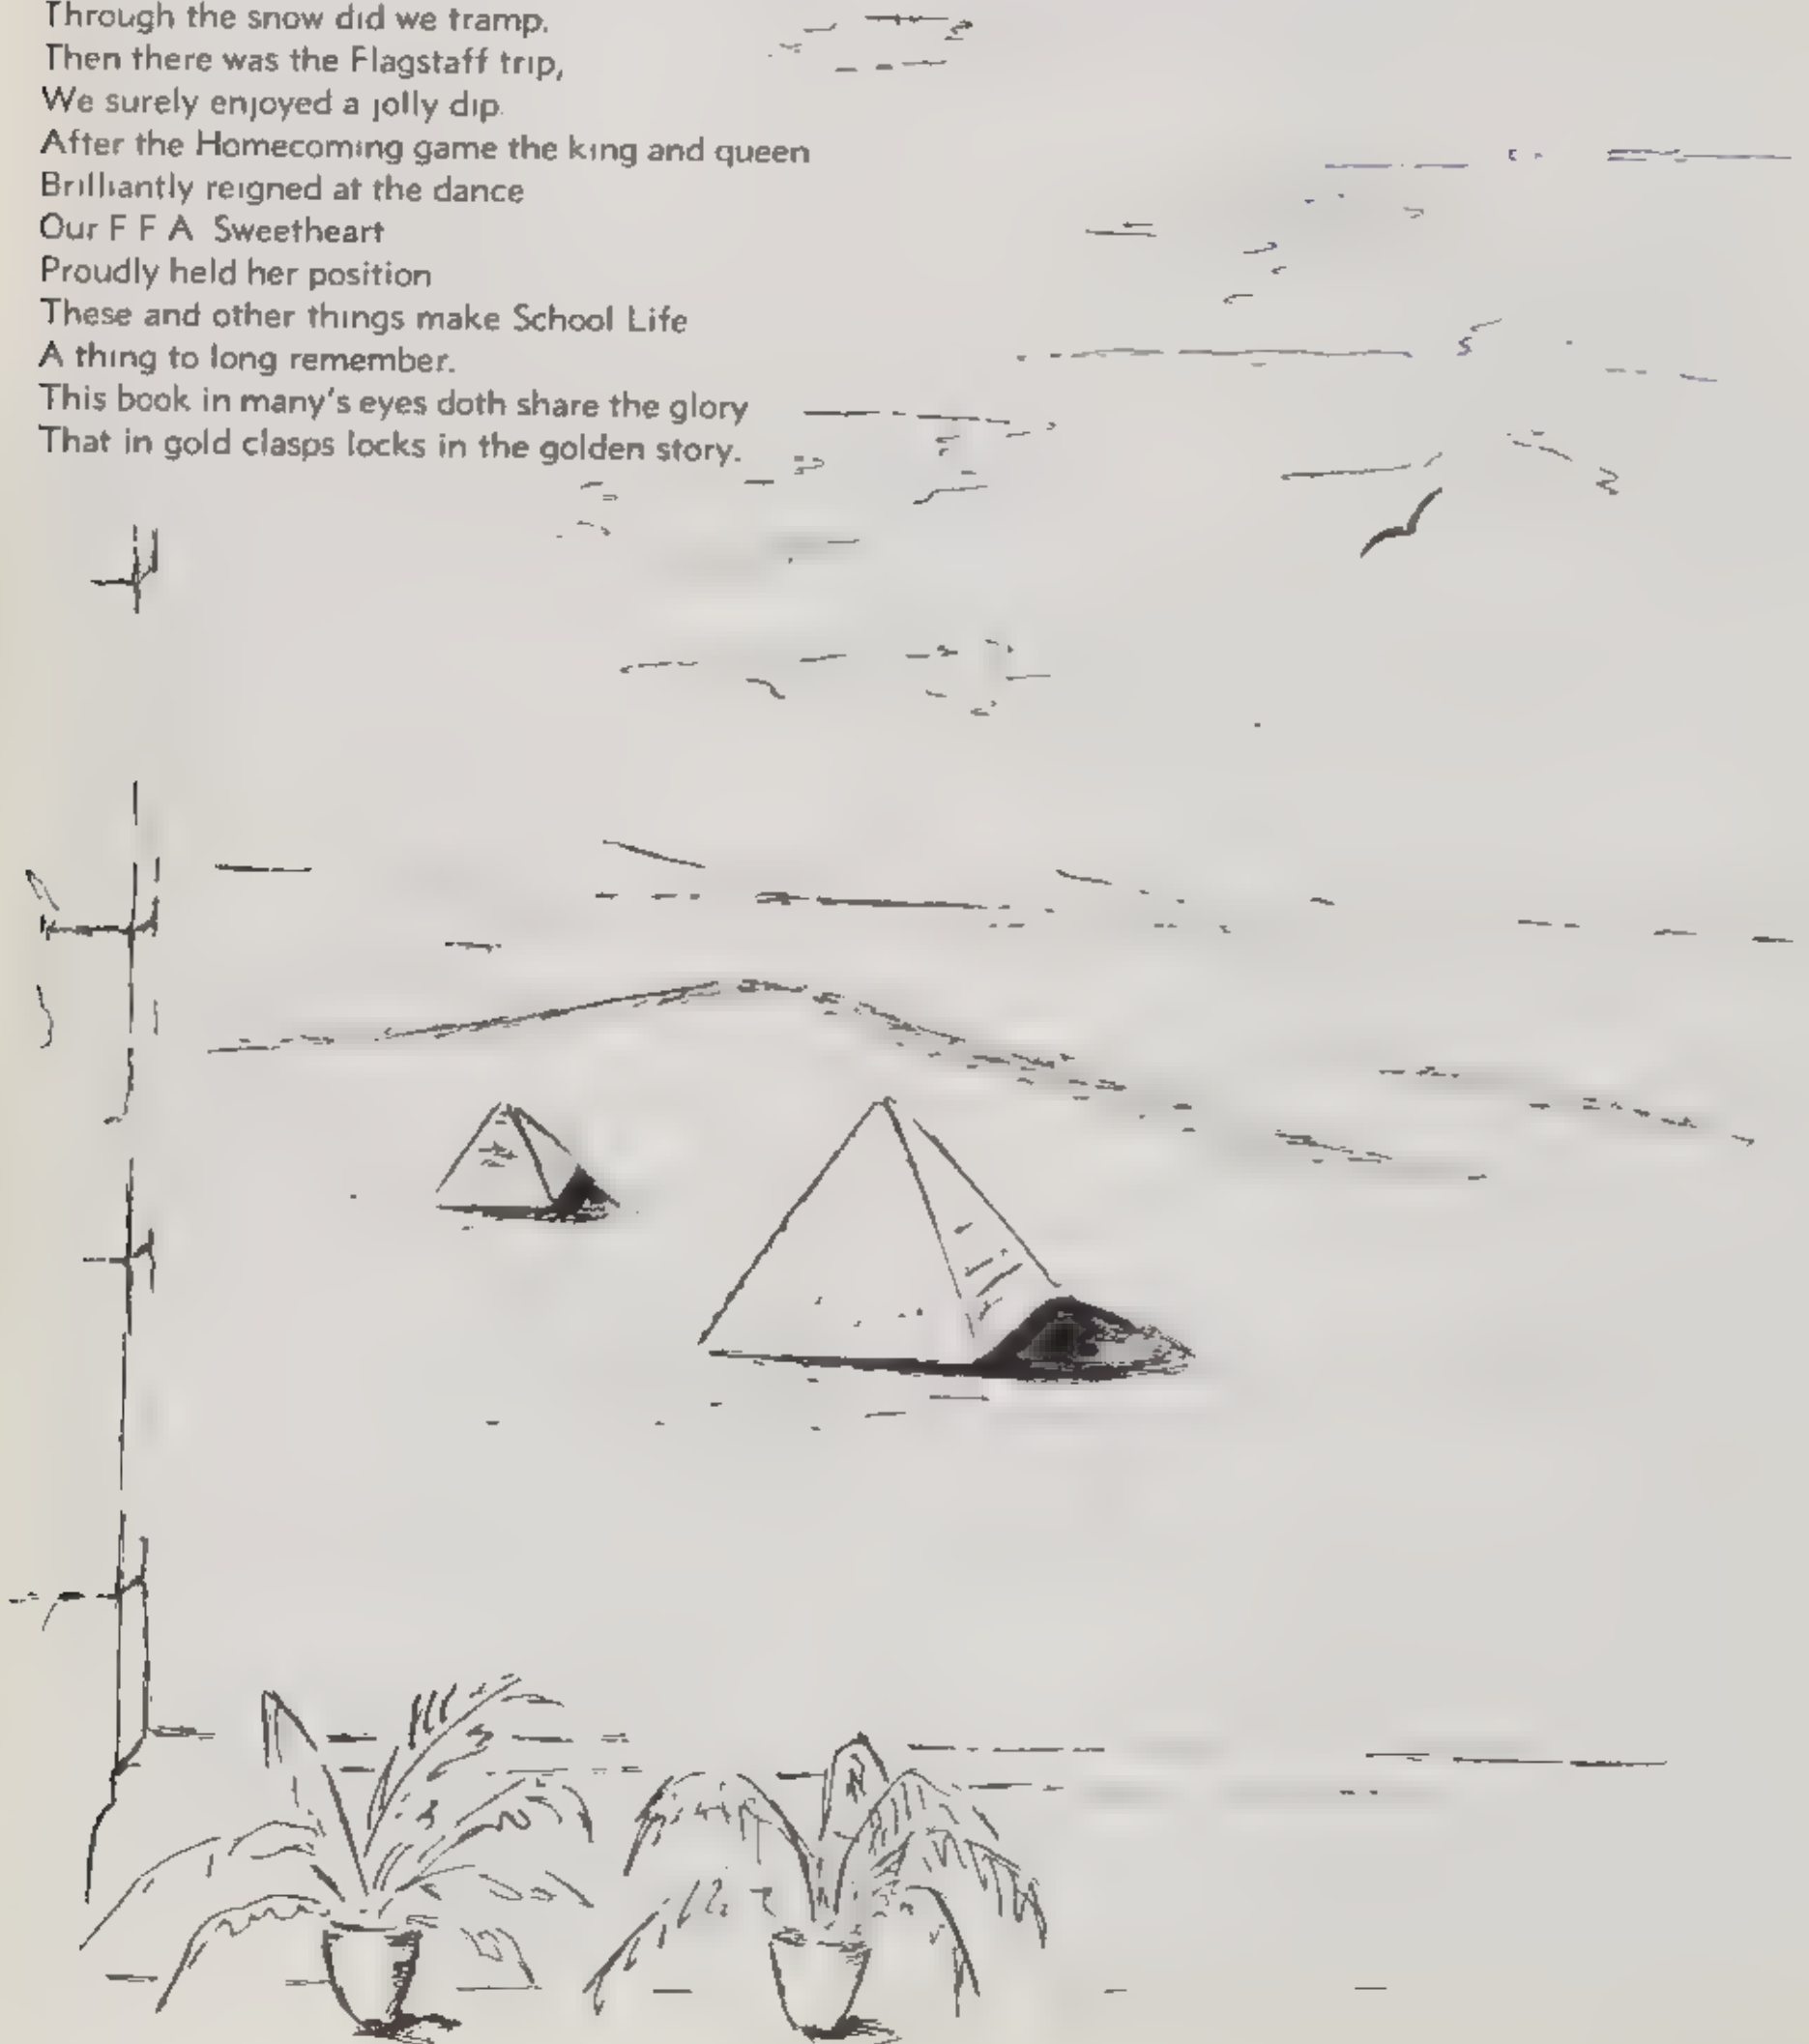 Through the snow did we tramp.
Then there was the Flagstaff trip,
We surely enjoyed a jolly dip.
After the Homecoming game the king and queen
Brilliantly reigned at the dance
Our F F A Sweetheart
Proudly held her position
These and other things make School Life
A thing to long remember.
This book in many's eyes doth share the glory
That in gold clasps locks in the golden story.